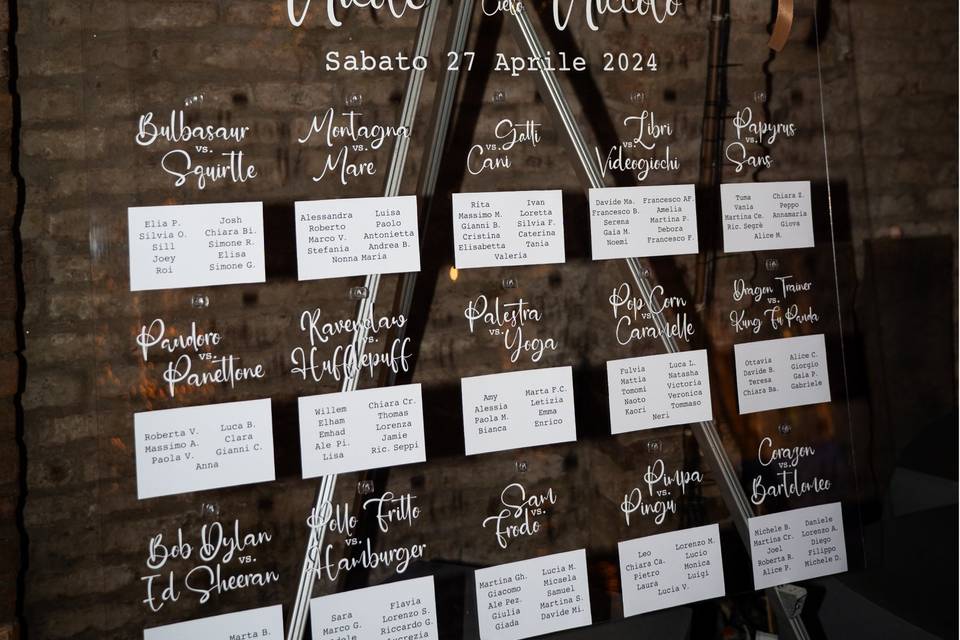 Nicole Cielo Niccolò
Sabato 27 Aprile 2024
Bulbasaur
vs.
Squirtle
Elia P. Josh
Silvia O. Chiara Bi.
Sill Simone R.
Joey Elisa
Roi Simone G.
Montagna
vs.
Mare
Alessandra Luisa
Roberto Paolo
Marco V. Antonietta
Stefania Andrea B.
Nonna Maria
Gatti
vs.
Cani
Rita Ivan
Massimo M. Loretta
Gianni B. Silvia F.
Cristina Caterina
Elisabetta Tania
Valeria
Libri
vs.
Videogiochi
Davide Ma. Francesco AF.
Francesco B. Amelia
Serena Martina P.
Gaia M. Debora
Noemi Francesco F.
Papyrus
vs.
Sans
Tuma Chiara Z.
Vania Peppo
Martina Ce. Annamaria
Ric. Segrè Giova
Alice M.
Pandoro
vs.
Panettone
Roberta V. Luca B.
Massimo A. Clara
Paola V. Gianni C.
Anna
Ravenclaw
vs.
Hufflepuff
Willem Chiara Cr.
Elham Thomas
Emhad Lorenza
Ale Pi. Jamie
Lisa Ric. Seppi
Palestra
vs.
Yoga
Amy Marta F.C.
Alessia Letizia
Paola M. Emma
Bianca Enrico
Pop Corn
vs.
Caramelle
Fulvia Luca L.
Mattia Natasha
Tomomi Victoria
Naoto Veronica
Kaori Tommaso
Neri
Dragon Trainer
vs.
Kung Fu Panda
Ottavia Alice C.
Davide B. Giorgio
Teresa Gaia P.
Chiara Ba. Gabriele
Bob Dylan
vs.
Ed Sheeran
Marta B.
Pollo Fritto
vs.
Hamburger
Sara Flavia
Marco G. Lorenzo S.
Riccardo G.
Sam
vs.
Frodo
Martina Gh. Lucia M.
Giacomo Micaela
Ale Pez. Samuel
Giulia Martina S.
Giada Davide Mi.
Pimpa
vs.
Pingu
Leo Lorenzo M.
Chiara Ca. Lucio
Pietro Monica
Laura Luigi
Lucia V.
Corazon
vs.
Bartolomeo
Michele B. Daniele
Martina Cr. Lorenzo A.
Joel Diego
Roberta R. Filippo
Alice P. Michele D.